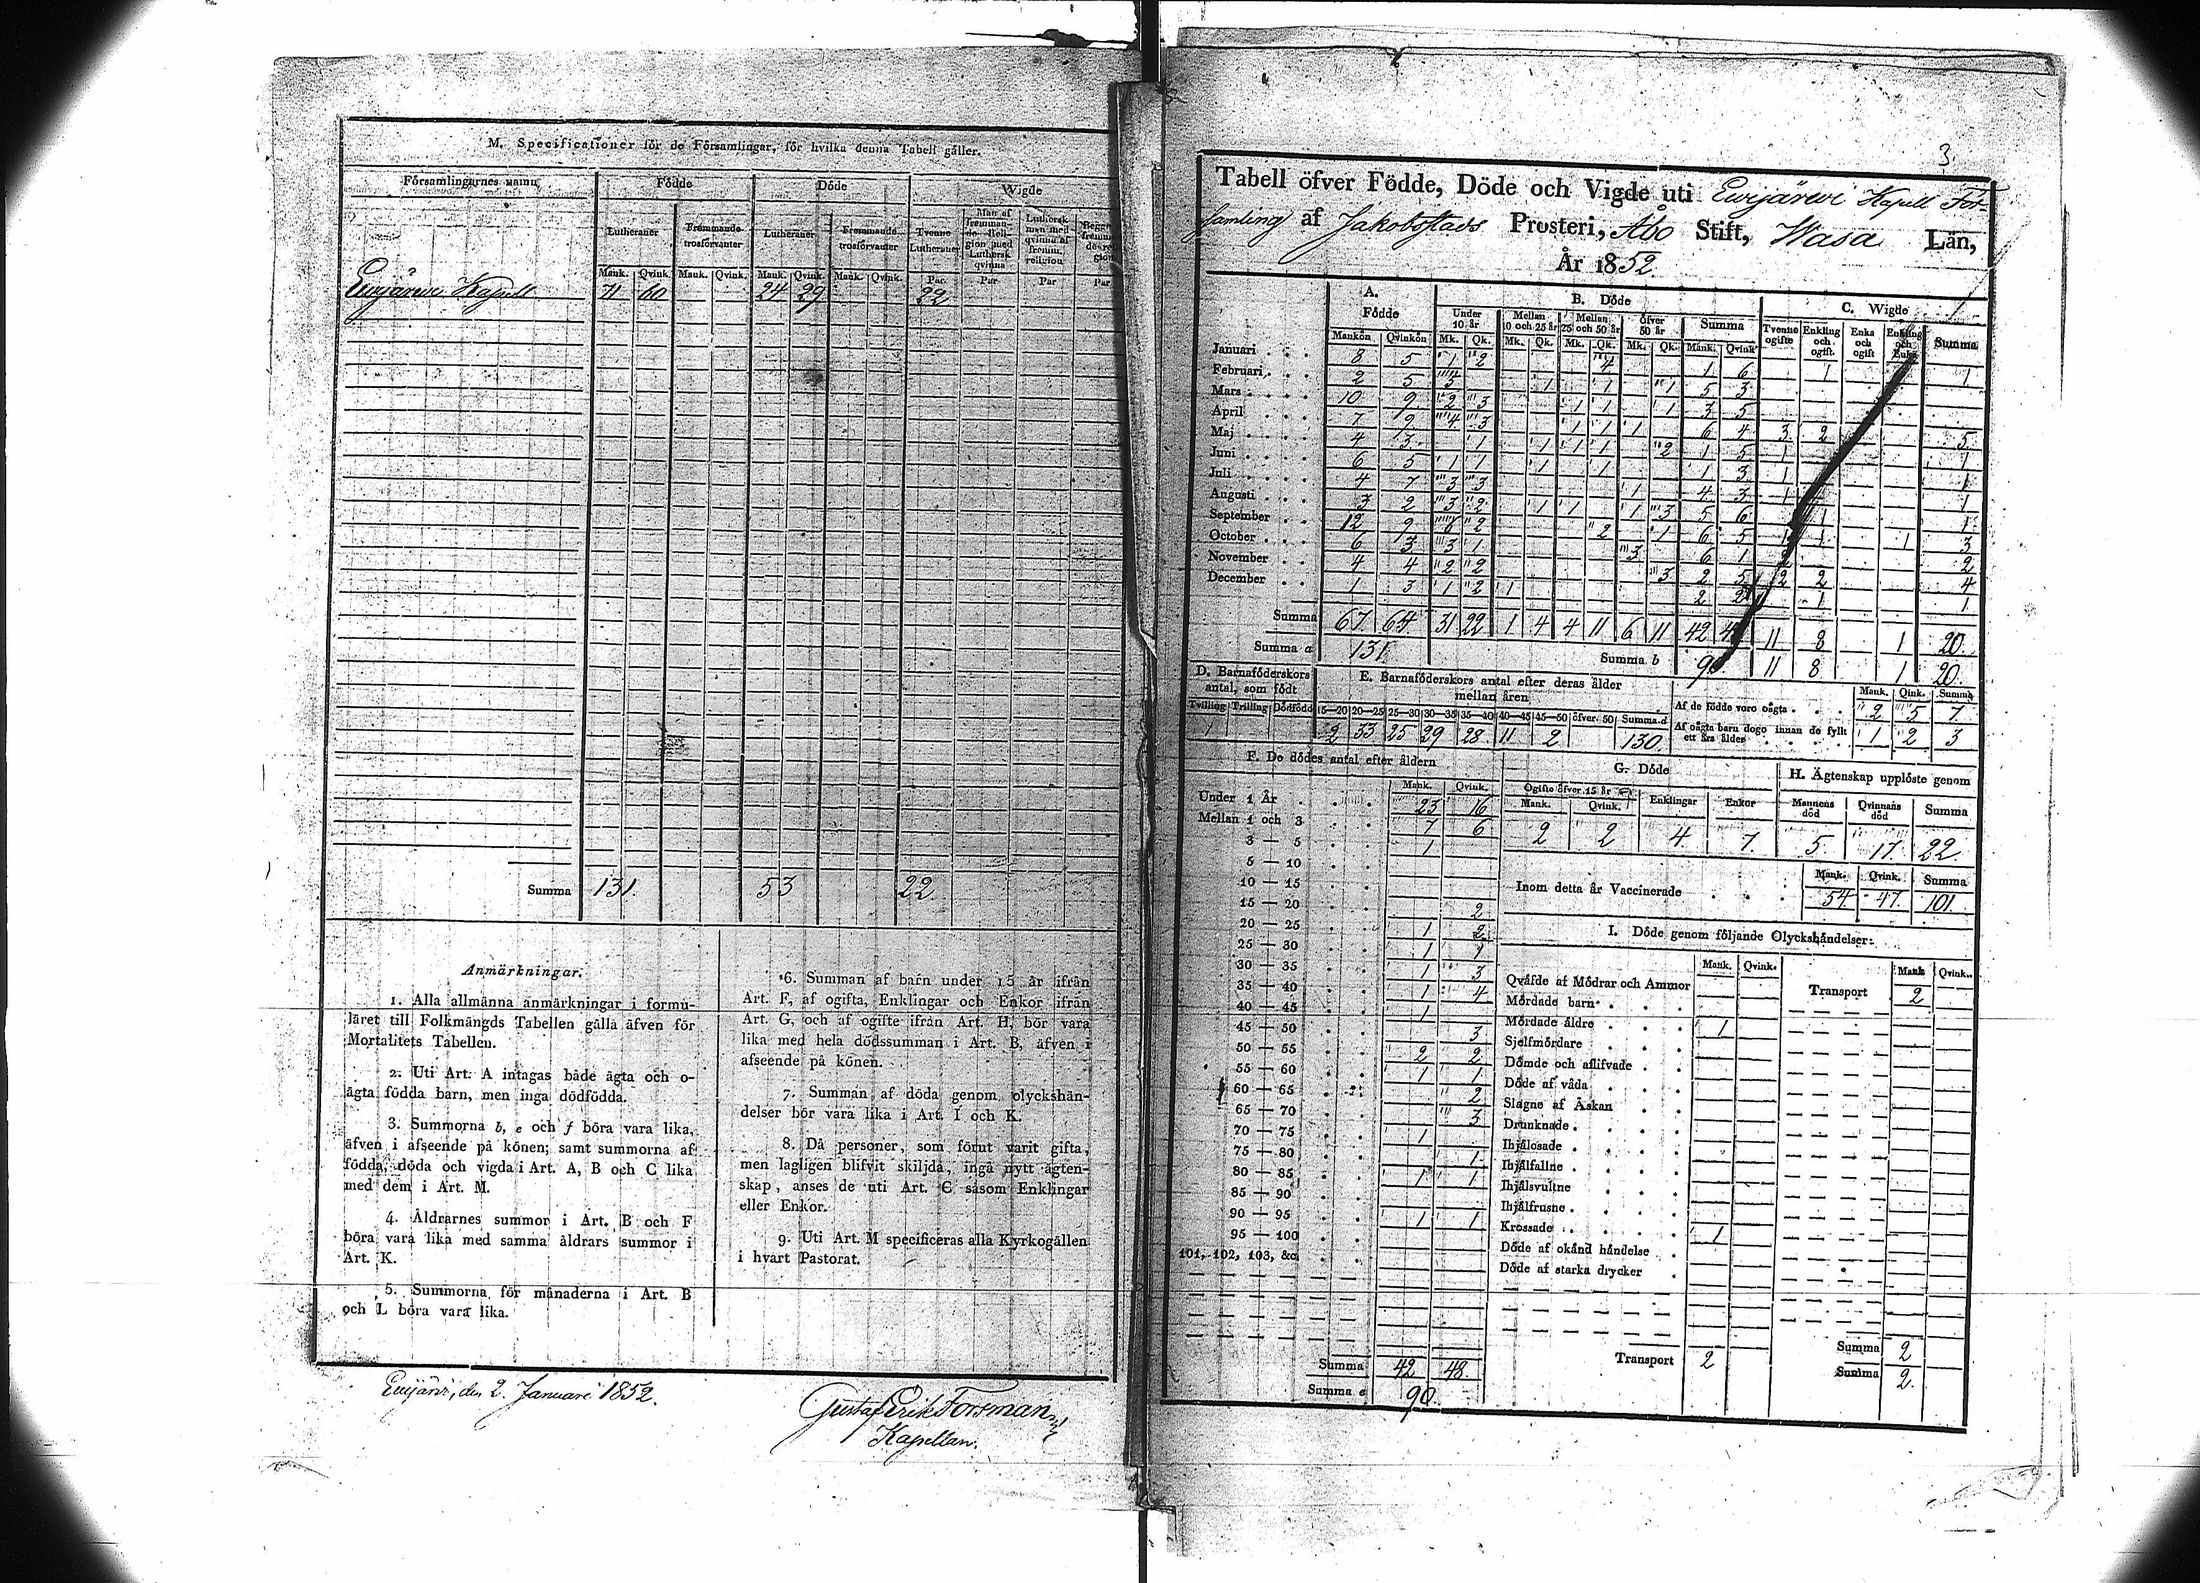 M. Specificationer för de Församlingar, för hvilka denna Tabell gäller.
Församlingarnes namn Födde Döde Wigde
Lutheraner Fremmande trosförvanter Lutheraner Fremmande trosförvanter Tvenne Lutheraner Man af fremmande Religion med Luthersk qvinna Luthersk man med qvinna af fremm. religion
Mank. Qvink. Mank. Qvink. Mank. Qvink. Mank. Qvink. Par Par Par Par
Ewijärwi Kapell 71 60 24 29 22
Summa 131. 53 22.
Anmärkningar.
1. Alla allmänna anmärkningar i formu-
läret till Folkmängds Tabellen gälla äfven för
Mortalitets Tabellen.
2. Uti Art. A intagas både ägta och o-
ägta födda barn, men inga dödfödda.
3. Summorna b, e och f böra vara lika,
äfven i afseende på könen; samt summorna af
födda, döda och vigda i Art. A, B och C lika
med dem i Art. M.
4. Åldrarnes summor i Art. B och F
böra vara lika med samma åldrars summor i
Art. K.
5. Summorna för månaderna i Art. B
och L böra vara lika.
6. Summan af barn under 15 år ifrån
Art. F, af ogifta, Enklingar och Enkor ifrån
Art. G, och af ogifte ifrån Art. H, bör vara
lika med hela dödssumman i Art. B, äfven i
afseende på könen.
7. Summan af döda genom olyckshän-
delser bör vara lika i Art. I och K.
8. Då personer, som förut varit gifta,
men lagligen blifvit skiljda, ingå nytt ägten-
skap, anses de uti Art. C såsom Enklingar
eller Enkor.
9. Uti Art. M specificeras alla Kyrkogällen
i hvart Pastorat.
Ewijärwi, den 2. Januari 1852.
Gustaf Erik Forsman
Kapellan.
3.
Tabell öfver Födde, Döde och Vigde uti Ewijärwi Kapell För-
samling af Jakobstads Prosteri, Åbo Stift, Wasa Län,
År 1852.
A. Födde B. Döde C. Wigde
Under 10 år Mellan 10 och 25 år Mellan 25 och 50 år Öfver 50 år Summa Tvenne ogifte Enkling och ogift. Enka och ogift Enkling och Enka Summa
Mankön Qvinkön Mk. Qk. Mk. Qk. Mk. Qk. Mk. Qk. Mank. Qvink
Januari 8 5 1 2 4 1 6 1 1
Februari 2 5 5 1 1 1 5 3
Mars 10 9 2 3 1 1 1 3 5
April 7 9 4 3 1 1 1 6 4 3 2 5
Maj 4 3 1 1 1 1 2 1 5 1 1
Juni 6 5 1 1 1 1 1 3 1 1
Juli 4 7 3 3 1 4 3 1 1
Augusti 3 2 3 2 1 1 1 3 5 6 1 1
September 12 9 6 2 2 1 6 5 1 1 1 3
October 6 3 3 1 3 6 1 2 2
November 4 4 2 2 3 2 5 2 2 4
December 1 3 1 2 1 2 2 1 1
Summa 67 64 31 22 1 4 4 11 6 11 42 11 8 1 20.
Summa a 131 Summa b 11 8 1 20.
D. Barnaföderskors antal, som födt
Tvilling Trilling Dödfödd
1
E. Barnaföderskors antal efter deras ålder mellan åren
15—20 20—25 25—30 30—35 35—40 40—45 45—50 öfver 50 Summa d
2 33 25 29 28. 11 2 130
Mank. Qink. Summa
Af de födde voro oägta 2 5 7
Af oägta barn dogo innan de fyllt ett års ålder 1 2 3
F. De dödes antal efter åldern
Mank. Qvink.
Under 1 År 23 16
Mellan 1 och 3 7 6
3 — 5 1
5 — 10
10 — 15
15 — 20 2
20 — 25 1 2
25 — 30 1 1
30 — 35 1 3
35 — 40 1 4
40 — 45 1
45 — 50 3
50 — 55 2 2
55 — 60 1 1
60 — 65 2
65 — 70 3
70 — 75 1
75 — 80 1
80 — 85 1 1
85 — 90
90 — 95 1 1
95 — 100
101, 102, 103, &c.
Summa 42 48.
Summa e 90.
G. Döde
Ogifte öfver 15 år Enklingar Enkor
Mank. Qvink.
2 2 4 7.
H. Ägtenskap upplöste genom
Mannens död Qvinnans död Summa
5 17. 22.
Mank. Qvink. Summa
Inom detta år Vaccinerade 54 47. 101.
I. Döde genom följande Olyckshändelser:
Mank. Qvink. Mank Qvink.
Qväfde af Mödrar och Ammor Transport 2
Mördade barn
Mördade äldre 1
Sjelfmördare
Dömde och aflifvade
Döde af våda
Slagne af Åskan
Drunknade
Ihjälosade
Ihjälfallne
Ihjälsvultne
Ihjälfrusne
Krossade 1
Döde af okänd händelse
Döde af starka drycker
Transport 2 Summa 2
Summa 2.